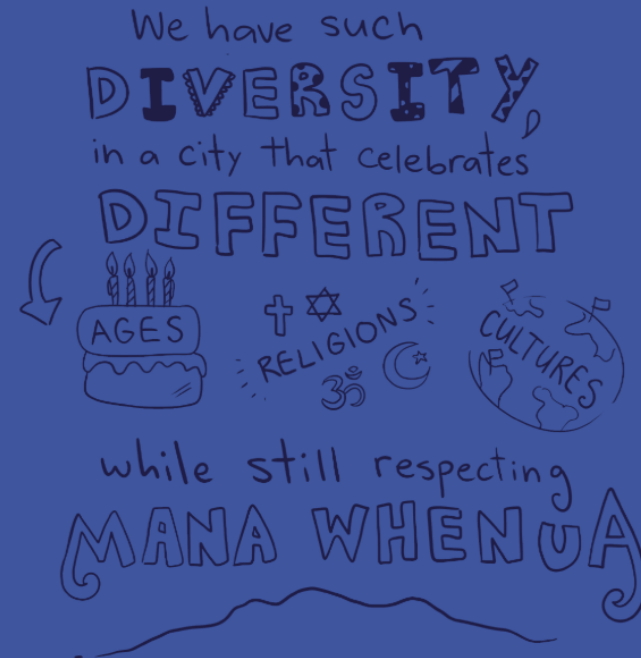 We have such
DIVERSITY,
in a city that celebrates
DIFFERENT
AGES
RELIGIONS
CULTURES
while still respecting
MANA WHENUA